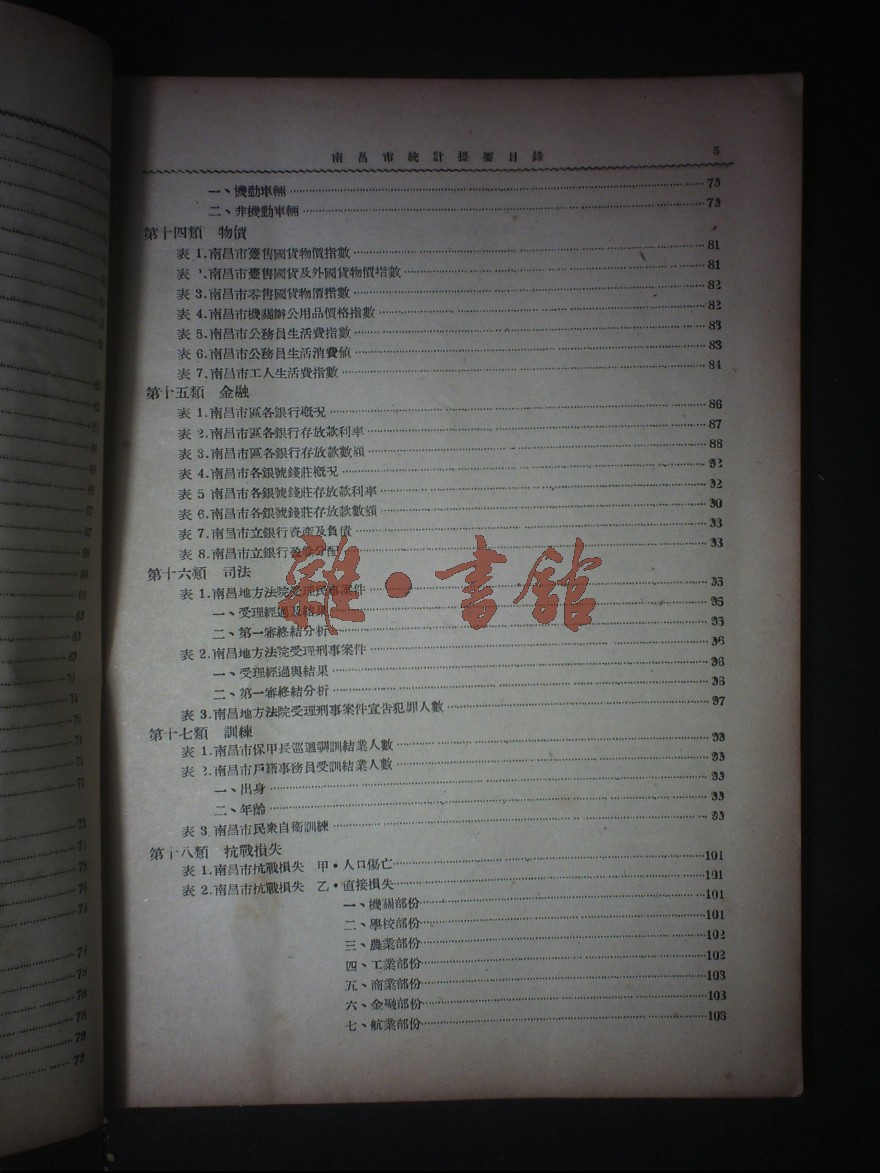 南昌市統計提要目錄 5
一、機動車輛 73
二、非機動車輛 73
第十四類 物價
表 1.南昌市躉售國貨物價指數 81
表 .南昌市躉售國貨及外國貨物價指數 81
表 3.南昌市零售國貨物價指數 82
表 4.南昌市機關辦公用品價格指數 82
表 5.南昌市公務員生活費指數 83
表 6.南昌市公務員生活消費値 83
表 7.南昌市工人生活費指數 84
第十五類 金融
表 1.南昌市區各銀行概况 86
表 2.南昌市區各銀行存放款利率 87
表 3.南昌市區各銀行存放款數額 88
表 4.南昌市各銀號錢莊概况
表 5 南昌市各銀號錢莊存放款利率
表 6.南昌市各銀號錢莊存放款數額
表 7.南昌市立銀行資產及負債
表 8.南昌市立銀行盈餘分配
雜·書館
第十六類 司法
表 1.南昌地方法院受理民事案件
一、受理經過及結果
二、第一審終結分析
表 2.南昌地方法院受理刑事案件
一、受理經過與結果
二、第一審終結分析
表 3.南昌地方法院受理刑事案件宣告犯罪人數 97
第十七類 訓練
表 1.南昌市保甲長巡迴調訓結業人數
表 2.南昌市戶籍事務員受訓結業人數
一、出身
二、年齡
表 3 南昌市民衆自衛訓練
第十八類 抗戰損失
表 1.南昌市抗戰損失 甲·人口傷亡 101
表 2.南昌市抗戰損失 乙·直接損失 101
一、機關部份 101
二、學校部份 101
三、農業部份 102
四、工業部份 102
五、商業部份 103
六、金融部份 103
七、航業部份 103